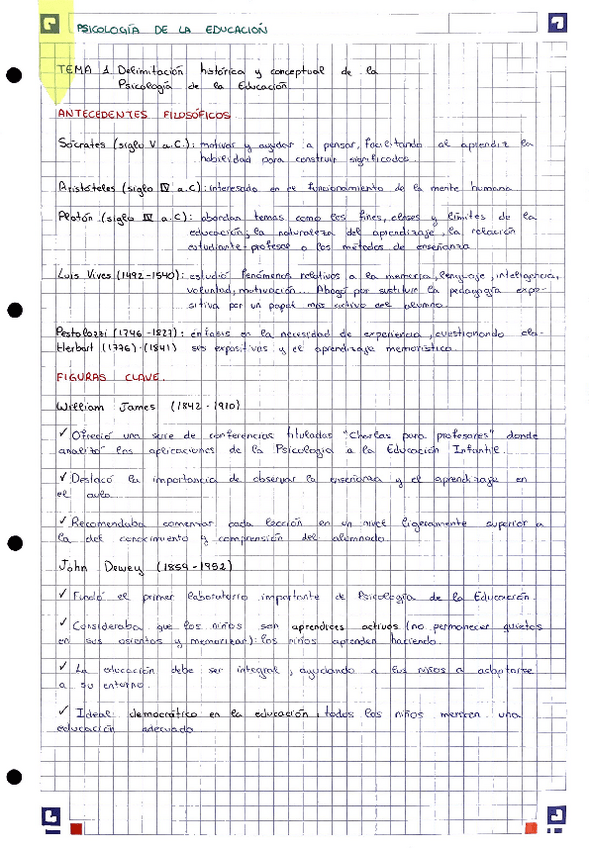 PSICOLOGÍA DE LA EDUCACIÓN
TEMA 1. Delimitación histórica y conceptual de la
Psicología de la Educación
ANTECEDENTES FILOSÓFICOS
Sócrates (siglo V a.C.): motivar y ayudar a pensar, facilitando al aprendiz la
habilidad para construir significados.
Aristóteles (siglo IV a.C): interesado en el funcionamiento de la mente humana
Platón (siglo IV a.C): abordan temas como los fines, clases y límites de la
educación; la naturaleza del aprendizaje, la relación
estudiante-profesor o los métodos de enseñanza
Luis Vives (1492-1540): estudió fenómenos relativos a la memoria, lenguaje, inteligencia,
voluntad, motivación... Abogó por sustituir la pedagogía expo-
sitiva por un papel más activo del alumno.
Pestalozzi (1746-1827): énfasis en la necesidad de experiencia, cuestionando cla-
Herbart (1776)-(1841) ses expositivas y el aprendizaje memorístico.
FIGURAS CLAVE.
William James (1842-1910)
✓ Ofreció una serie de conferencias tituladas "Charlas para profesores" donde
analizó las aplicaciones de la Psicología a la Educación Infantil.
✓ Destacó la importancia de observar la enseñanza y el aprendizaje en
el aula.
✓ Recomendaba comenzar cada lección en un nivel ligeramente superior a
la del conocimiento y comprensión del alumnado.
John Dewey (1859-1952)
✓ Fundó el primer laboratorio importante de Psicología de la Educación.
✓ Consideraba que los niños son aprendices activos (no permanecer quietos
en sus asientos y memorizar): los niños aprenden haciendo.
✓ La educación debe ser integral, ayudando a los niños a adaptarse
a su entorno.
✓ Ideal democrático en la educación: todos los niños merecen una
educación adecuada